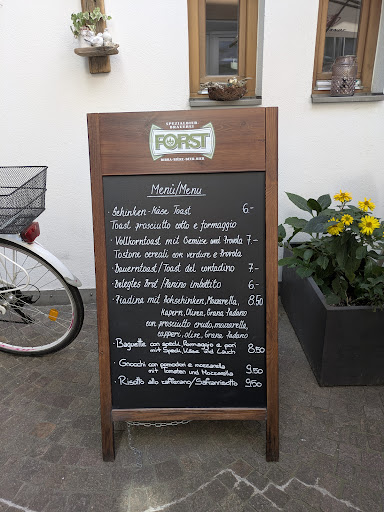 SPEZIALBIER-
BRAUEREI
FORST
BIRRA·BIÈRE·BIER·BEER
Menü/Menu
· Schinken-Käse Toast 6.-
Toast prosciutto cotto e formaggio
· Vollkorntoast mit Gemüse und Provola 7.-
Tostone cereali con verdure e Provola
· Bauerntoast/Toast del contadino 7.-
· Belegtes Brot/Panino imbottito 6.-
· Piadina mit Rohschinken, Mozzarella, 8.50
Kapern, Oliven, Grana Padano
con prosciutto crudo, mozzarella,
capperi, olive, Grana Padano
· Baguette con speck, formaggio e porri
mit Speck, Käse und Lauch 8.50
· Gnocchi con pomodori e mozzarella
mit Tomaten und Mozzarella 9.50
· Risotto allo zafferano/Safranrisotto 9.50